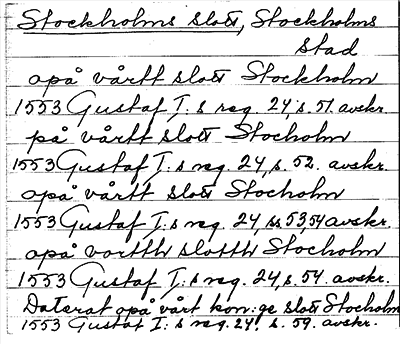 Stockholms slott, Stockholms
stad
opå vårtt slott Stockholm
1553 Gustaf I:s reg. 24, s. 51. avskr.
på vårtt slott Stocholm
1553 Gustaf I:s reg. 24, s. 52. avskr.
opå vårtt slott Stocholm
1553 Gustaf I:s reg. 24, ss. 53, 54 avskr.
opå vortth slotth Stocholm
1553 Gustaf I:s reg. 24, s. 54. avskr.
Daterat opå vårt kon:ge slott Stocholm
1553 Gustaf I:s reg. 24 s. 59. avskr.